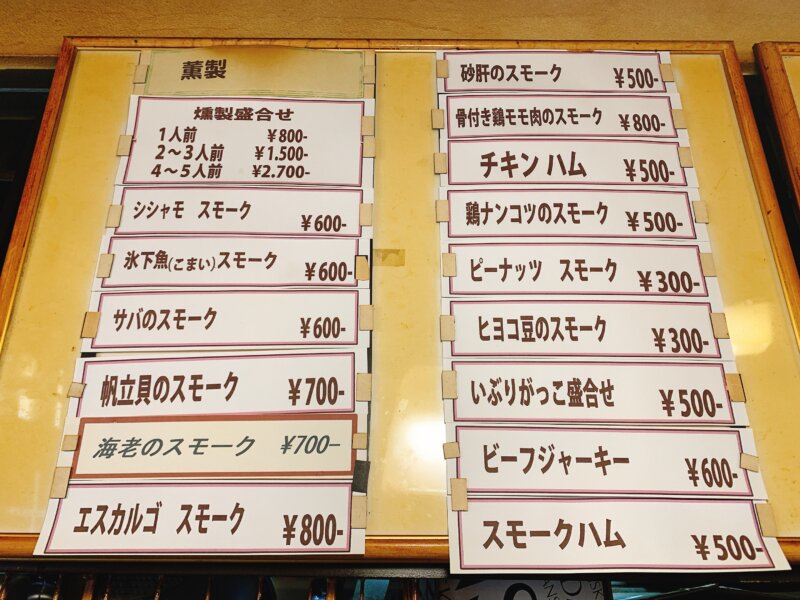 薫製
燻製盛合せ
1人前 ¥800-
2〜3人前 ¥1.500-
4〜5人前 ¥2.700-
シシャモ スモーク ¥600-
氷下魚(こまい)スモーク ¥600-
サバのスモーク ¥600-
帆立貝のスモーク ¥700-
海老のスモーク ¥700-
エスカルゴ スモーク ¥800-
砂肝のスモーク ¥500-
骨付き鶏モモ肉のスモーク ¥800-
チキン ハム ¥500-
鶏ナンコツのスモーク ¥500-
ピーナッツ スモーク ¥300-
ヒヨコ豆のスモーク ¥300-
いぶりがっこ盛合せ ¥500-
ビーフジャーキー ¥600-
スモークハム ¥500-